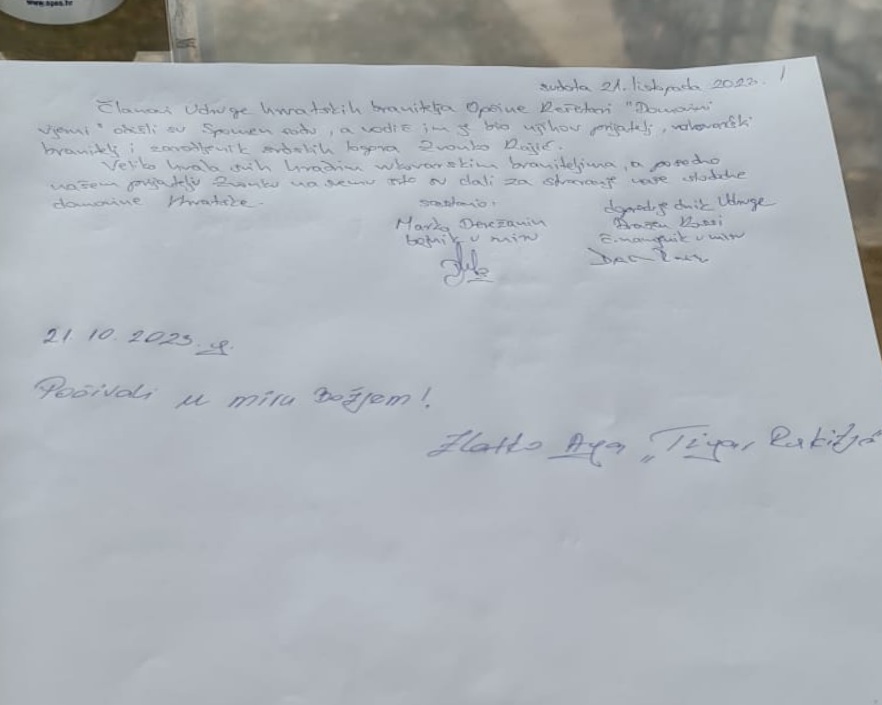 www.spas.hr
subota 21. listopada 2023.
Članovi Udruge hrvatskih branitelja Općine Rešetari "Domovini
vjerni" obišli su Spomen sobu, a vodič im je bio njihov prijatelj, vukovarski
branitelj i zarobljenik srbskih logora Zvonko
Veliko hvala svim hrabrim vukovarskim braniteljima, a posebno
našem prijatelju Zvonku na svemu što su dali za stvaranje naše slobodne
domovine Hrvatske.
sastavio: dopredsjednik Udruge
Marko
bojnik u miru č. narednik u miru
21. 10. 2023. g.
Počivali u miru Božjem!
Zlatko Aga "Tigar